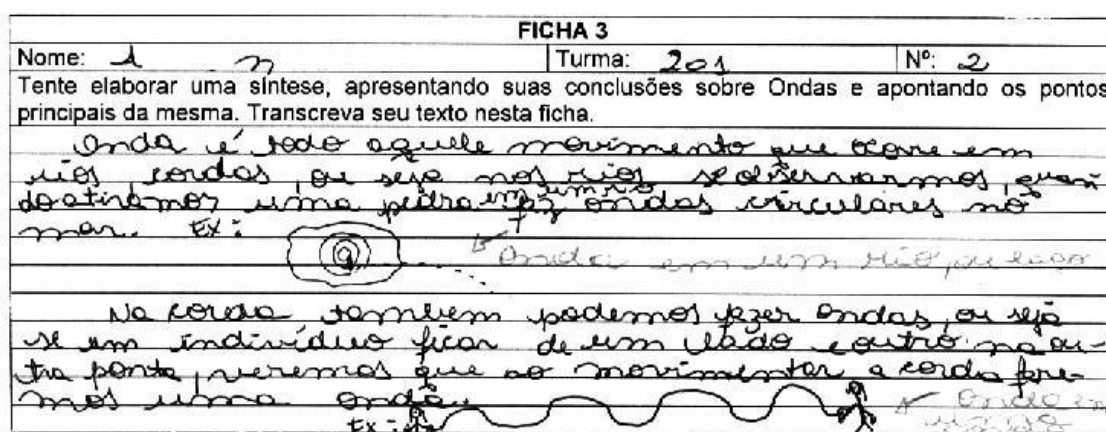 FICHA 3
Nome: Turma: 201 Nº: 2
Tente elaborar uma síntese, apresentando suas conclusões sobre Ondas e apontando os pontos
principais da mesma. Transcreva seu texto nesta ficha.
Onda é todo aquele movimento que ocorre em
rios, cordas, ou seja nos rios se observarmos, quan
do atiramos uma pedra em um rio faz ondas circulares no
mar. Ex:
Onda em um rio, ou lago
Na corda tambem podemos fazer ondas, ou seja
se um indivíduo ficar de um lado e outro na ou-
tra ponta, veremos que ao movimentar a corda fare-
mos uma onda.
Ex:
Onda em